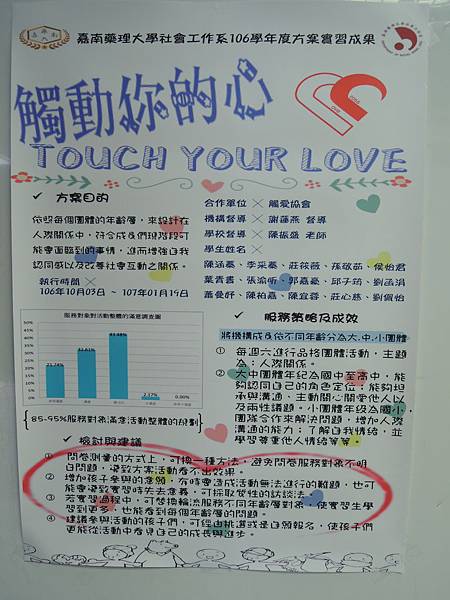 嘉南藥理大學社會工作系106學年度方案實習成果
觸動妳的心
TOUCH YOUR LOVE
✓ 方案目的
依照每個團體的年齡層,來設計在
人際關係中,符合成員們現階段可
能會面臨到的事情,進而增強自我
認同感以及改善社會互動之關係。
執行時間 ×
106年10月03日 ~ 107年01月19日
合作單位 × 觸愛協會
機構督導 × 謝蓮燕 督導
學校督導 × 陳振盛 老師
學生姓名 ×
陳涵蓁、李采蓁、莊筱薇、孫敬茹、侯怡君
葉貴書、張瀹昕、郭嘉豪、邱子筠、劉函涓
蕭曼妤、陳柏嘉、陳宜蓉、莊心慈、劉佩怡
服務對象對活動整體的滿意調查圖
50%
45%
40%
35%
30%
25%
20%
15%
10%
5%
0%
21.74%
32.61%
43.48%
2.17%
0.00%
{85-95%服務對象滿意活動整體的規劃}
✓ 服務策略及成效
將機構成員依不同年齡分為大.中.小團體
① 每週六進行品格團體活動,主題
為:人際關係。
② 大中團體年紀為國中至高中,能
夠認同自己的角色定位;能夠坦
承與溝通、主動關心關愛他人以
及兩性議題。小團體年級為國小,
團隊合作來解決問題,增加人際
溝通的能力;了解自我情緒,並
學習尊重他人情緒等等。
✓ 檢討與建議
① 問卷測量的方式上,可換一種方法,避免問卷服務對象不明
白問題,導致方案活動看不出效果。
② 增加孩子參與的意願,有時會造成活動無法進行的難題,也可
能導致實習時失去意義,可採取質性的訪談法。
③ 若實習過程中,可替換輪流服務不同年齡層對象,使實習生學
習到更多,也能看到每個年齡層的問題。
④ 建議參與活動的孩子們,可經由挑選或是自願報名,使孩子們
更能從活動中看見自己的成長與進步。